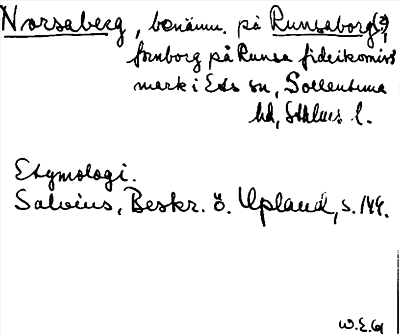 Norsaberg, benämn. på Runsaborg(?),
fornborg på Runsa fideikomiss
mark i Eds sn, Sollentuna
hd, Sthlms l.
Etymologi.
Salvius, Beskr. ö. Upland, s. 144.
W.E.G